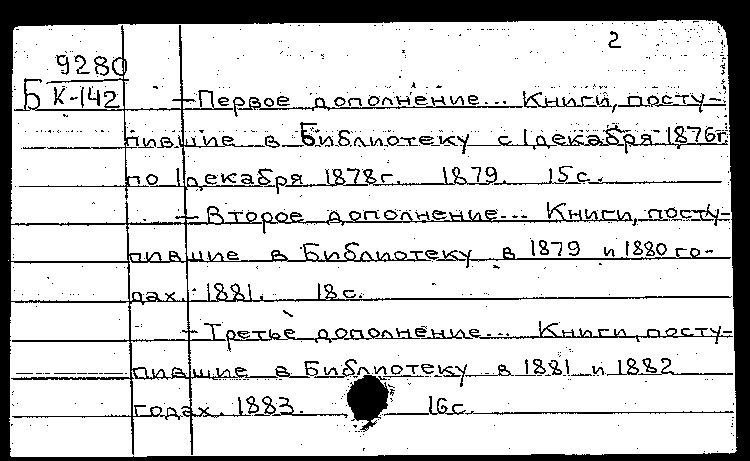 2
9280
Б К-142
— Первое дополнение... Книги, посту-
пившие в Библиотеку с 1 декабря 1876г.
по 1 декабря 1878г. 1879. 15с.
— Второе дополнение... Книги, посту-
пившие в Библиотеку в 1879 и 1880 го-
дах. 1881. 18с.
— Третье дополнение... Книги, посту-
пившие в Библиотеку в 1881 и 1882
годах. 1883. 16с.